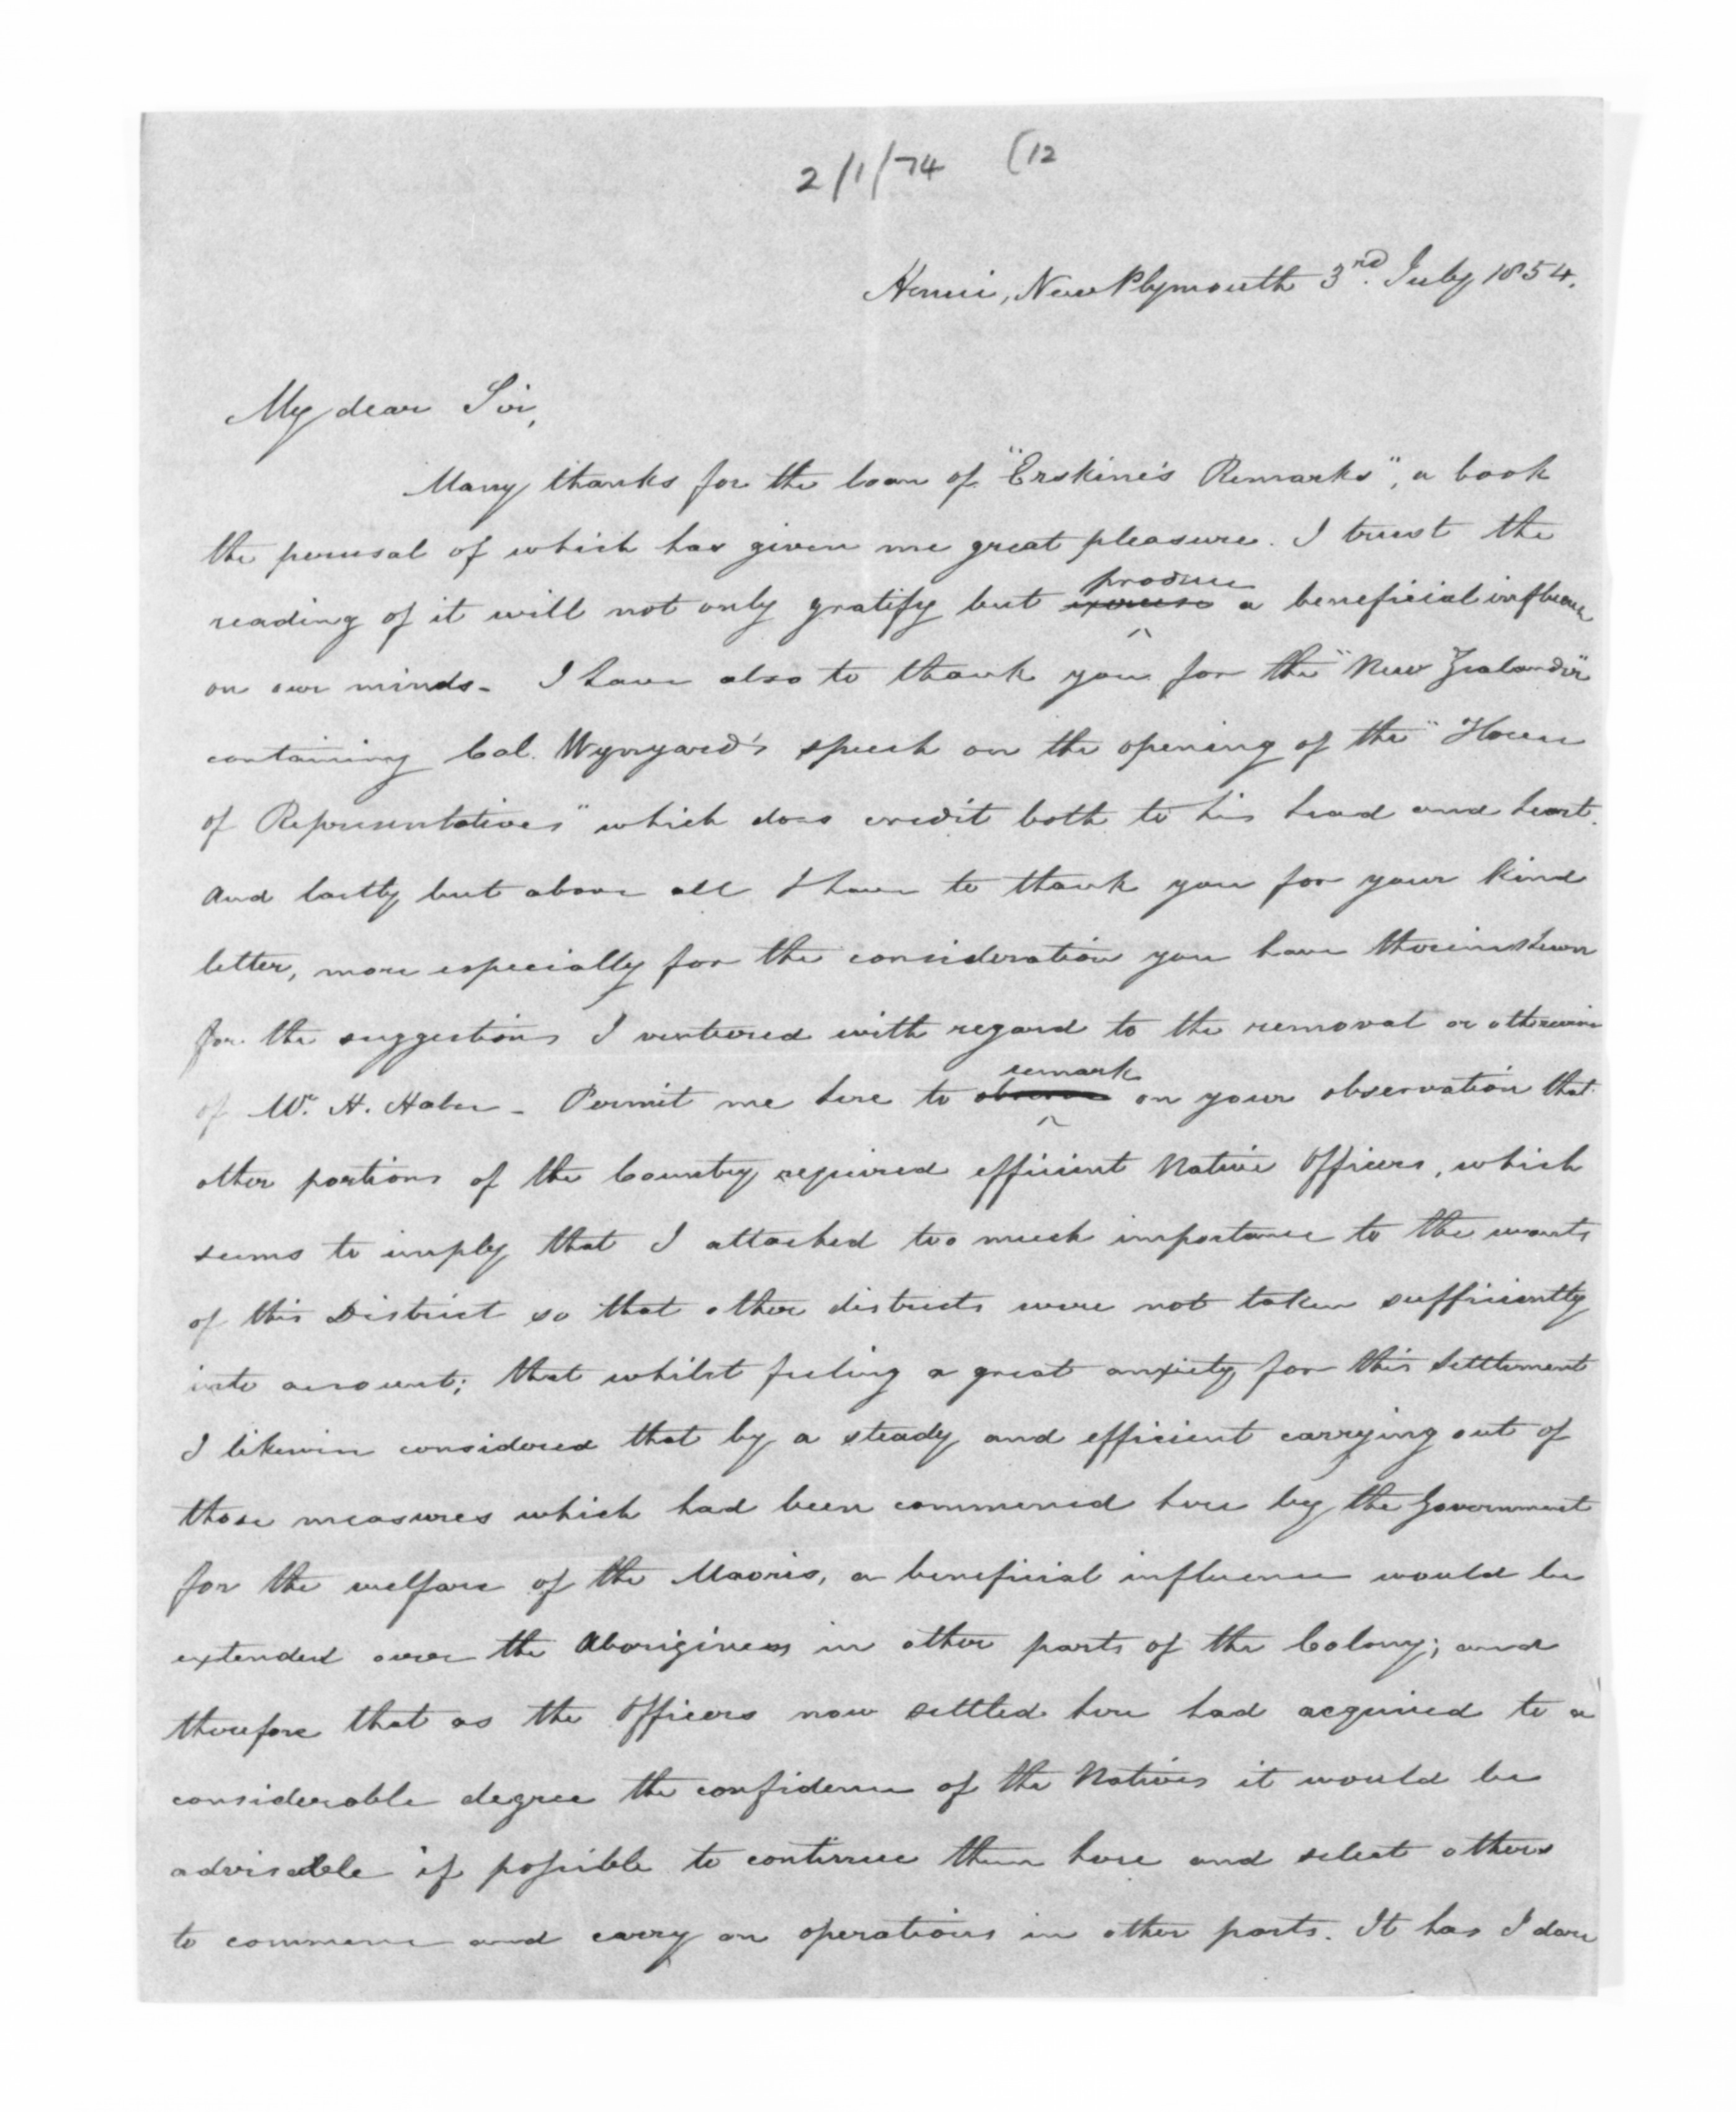 2/1/74 (12
Henui, New Plymouth 3rd. July 1854.
My dear Sir,
Many thanks for the loan of "Erskine's Remarks", a book
the perusal of which has given me great pleasure. I trust the
produce
reading of it will not only gratify but exercise a beneficial influence
on our minds. I have also to thank you for the "New Zealander"
containing Col. Wynyard's speech on the opening of the "House
of Representatives" which does credit both to his head and heart.
And lastly but above all I have to thank you for your kind
letter, more especially for the consideration you have therein shewn
for the suggestions I ventured with regard to the removal or otherwise
remark
of Mr. H. Halse - Permit me here to observe on your observation that
other portions of the Country required efficient Native Officers, which
seems to imply that I attached too much importance to the wants
of this District so that other districts were not taken sufficiently
into account; that whilst feeling a great anxiety for this Settlement
I likewise considered that by a steady and efficient carrying out of
those measures which had been commenced here by the Government
for the welfare of the Maoris, a beneficial influence would be
extended over the Aborigines in other parts of the Colony; and
therefore that as the Officers now settled here had acquired to a
considerable degree the confidence of the Natives it would be
advisable if possible to continue them here and select others
to commence and carry on operations in other parts. It has I dare